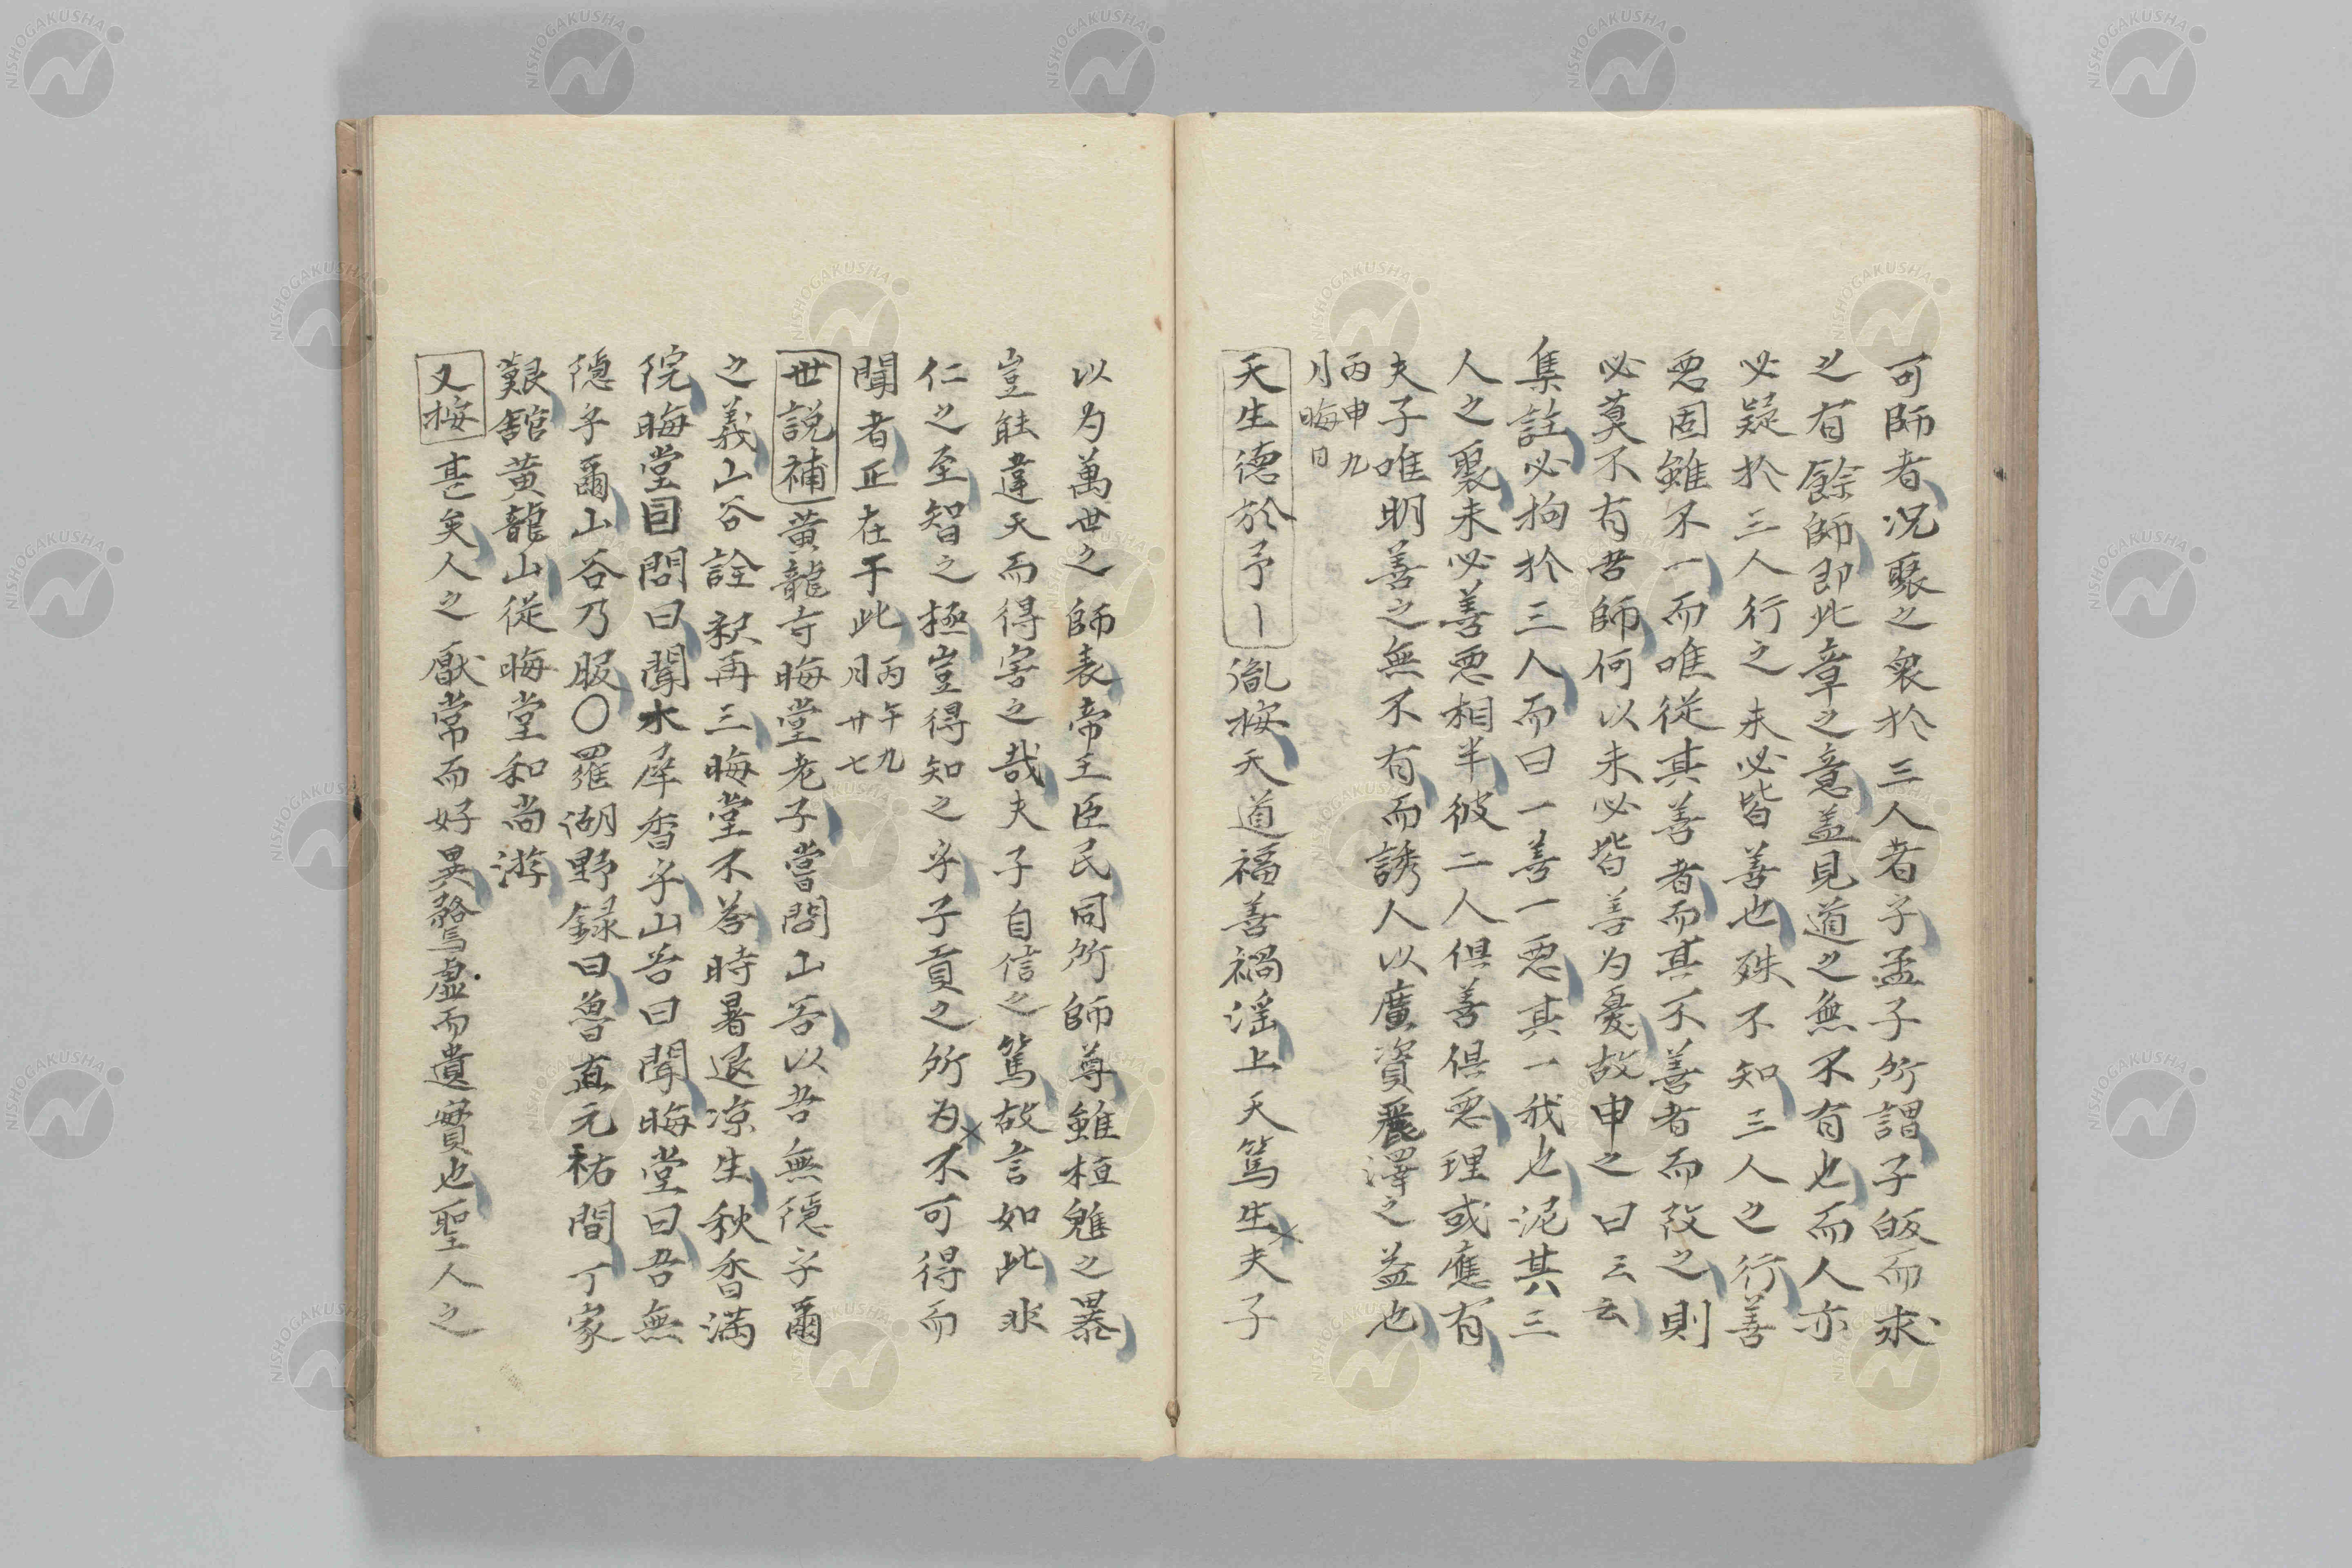 可師者況聚之衆於三人者乎孟子所謂子皈而求
之有餘師即此章之意盖見道之無不有也而人亦
必疑於三人行之未必皆善也殊不知三人之行善
悪固雖不一而唯從其善者而其不善者而改之則
必莫不有吾師何以未必皆善为憂故申之曰云云
集註必拘於三人而曰一善一悪其一我也泥其三
人之裏未必善悪相半彼二人倶善倶悪理或應有
夫子唯明善之無不有而誘人以廣資麗澤之益也
丙申九
月晦日
天生德於予〡胤桉天道福善禍淫上天篤生夫子
以为萬世之師表帝王臣民同所師尊雖桓魋之暴
豈能違天而得害之哉夫子自信之篤故言如此非
仁之至智之極豈得知之乎子貢之所为不可得而
聞者正在于此丙午九
月廿七
世説補黄龍寺晦堂老子嘗問山谷以吾無隠乎爾
之義山谷詮釈再三晦堂不答時暑退凉生秋香満
院晦堂因問曰聞木犀香乎山谷曰聞晦堂曰吾無
隠乎爾山谷乃服〇羅湖野録曰魯直元祐間丁家
艱舘黄龍山従晦堂和尚游
又桉甚矣人之厭常而好異騖虚而遺實也聖人之
NISHOGAKUSHA